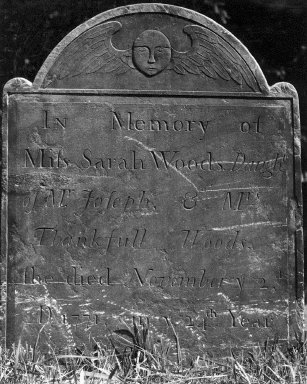 In Memory of
Miſs Sarah Woods, Daugtr
of Mr. Joseph, & Mrs.
Thankfull Woods.
ſhe died November ye 2,
in ye 24th Year